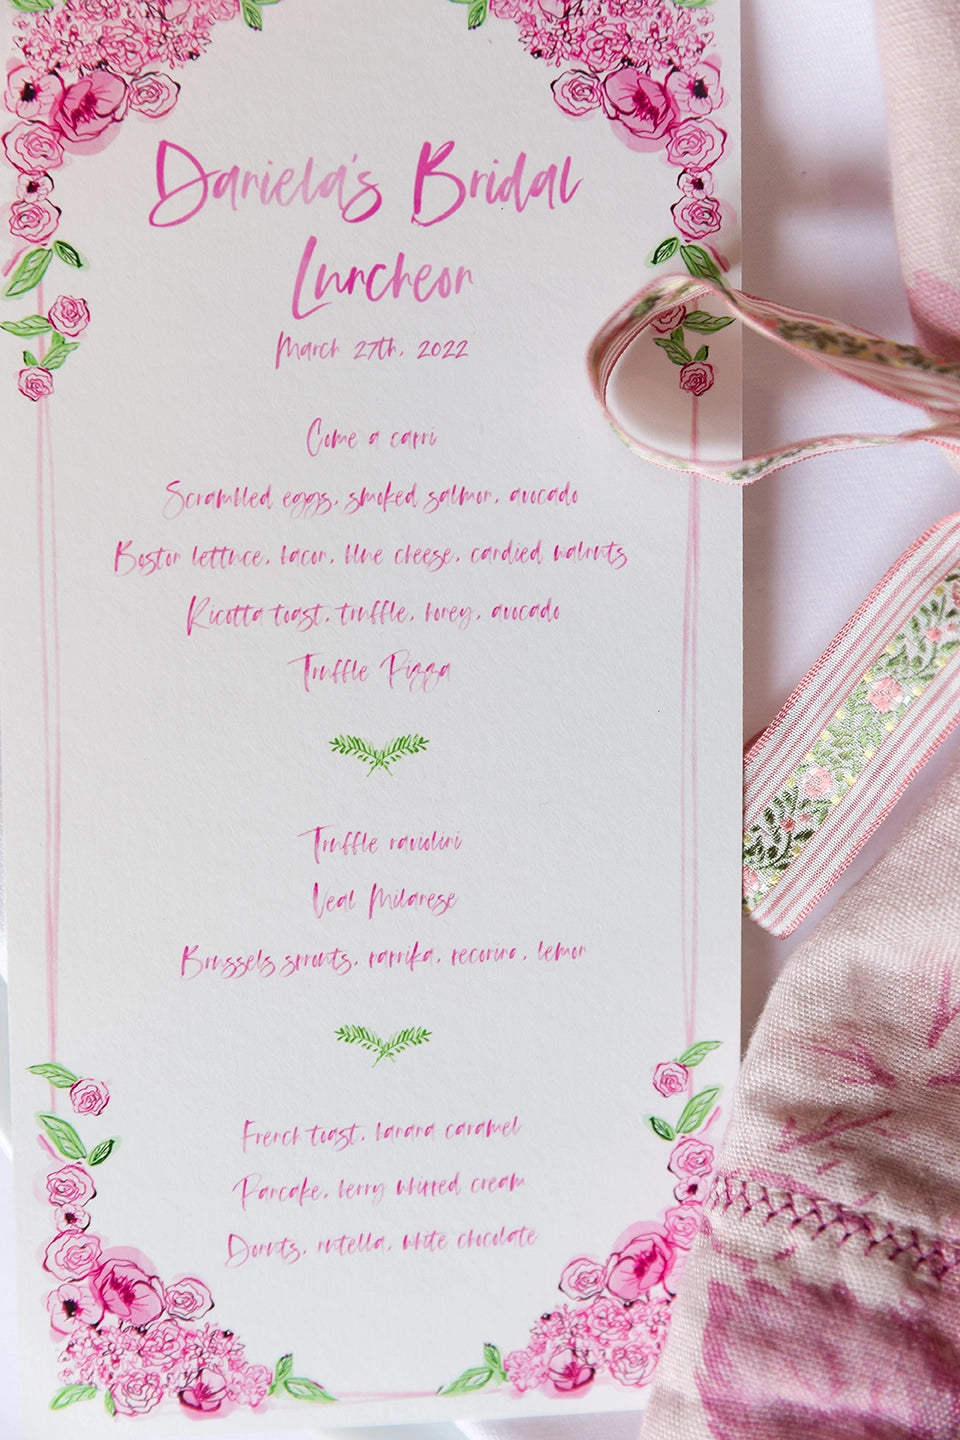 Daniela's Bridal
Luncheon
March 27th, 2022
Come a capri
Scrambled eggs, smoked salmon, avocado
Boston lettuce, bacon, blue cheese, candied walnuts
Ricotta toast, truffle, honey, avocado
Truffle Pizza
Truffle raviolini
Veal Milanese
Brussels sprouts, paprika, pecorino, lemon
French toast, banana caramel
Pancake, berry whipped cream
Donuts, nutella, white chocolate